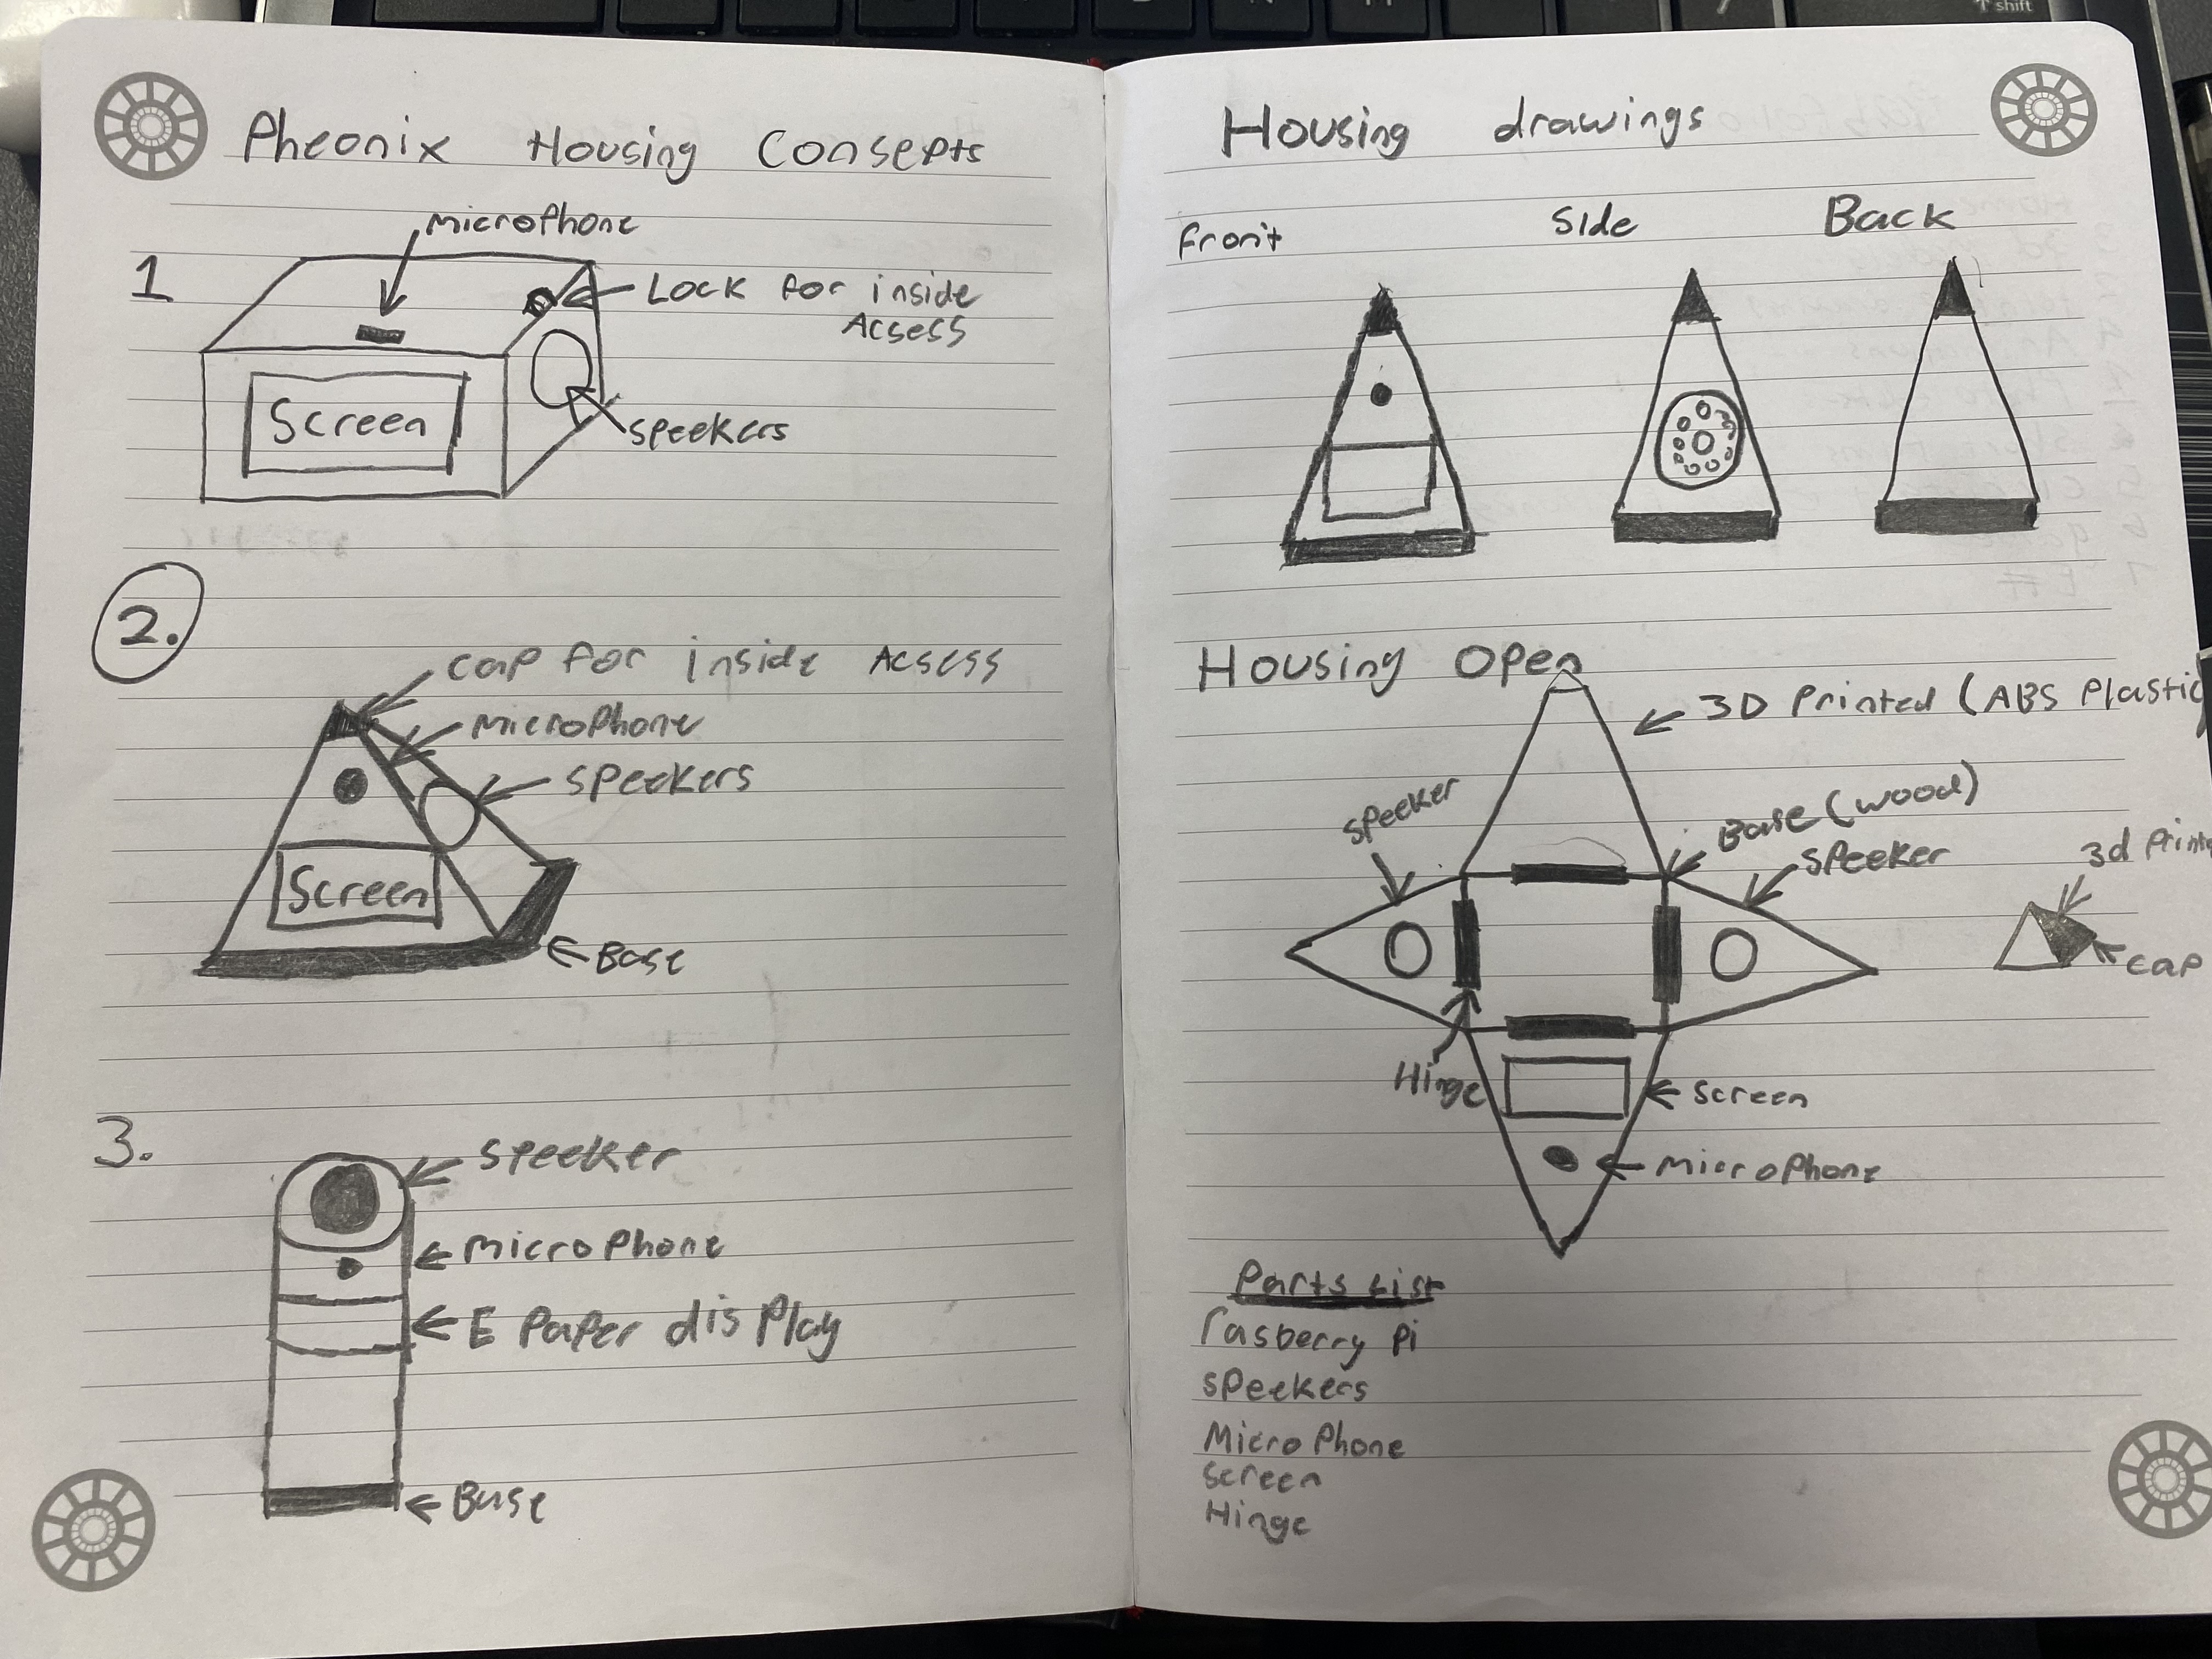 Pheonix Housing Consepts
1
microphone
Lock for inside
Acsess
Screen
speekers
2.
cap for inside Acsess
microphone
speekers
Screen
Base
3.
speeker
microphone
E Paper display
Base
Housing drawings
front
Side
Back
Housing Open
3D Printed (ABS Plastic)
speeker
Base (wood)
speeker
3d
cap
Hinge
screen
microphone
Parts List
rasberry Pi
speekers
Microphone
screen
Hinge
shift